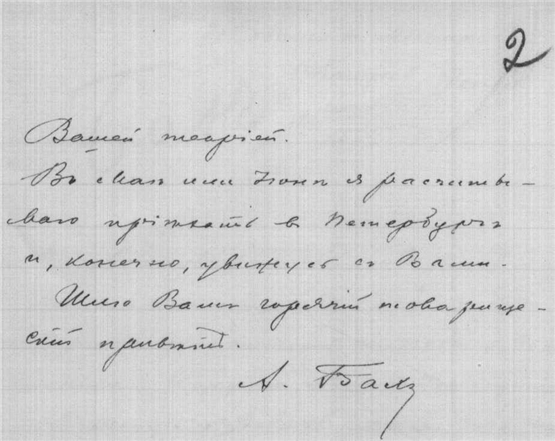 2
Вашей теоріей.
Въ Маѣ или Іюнѣ я расчиты-
ваю пріѣхать в Петербургъ
и, конечно, увижусь съ Вами.
Шлю Вамъ горячій товарище-
скій привѣт.
А. Бахъ